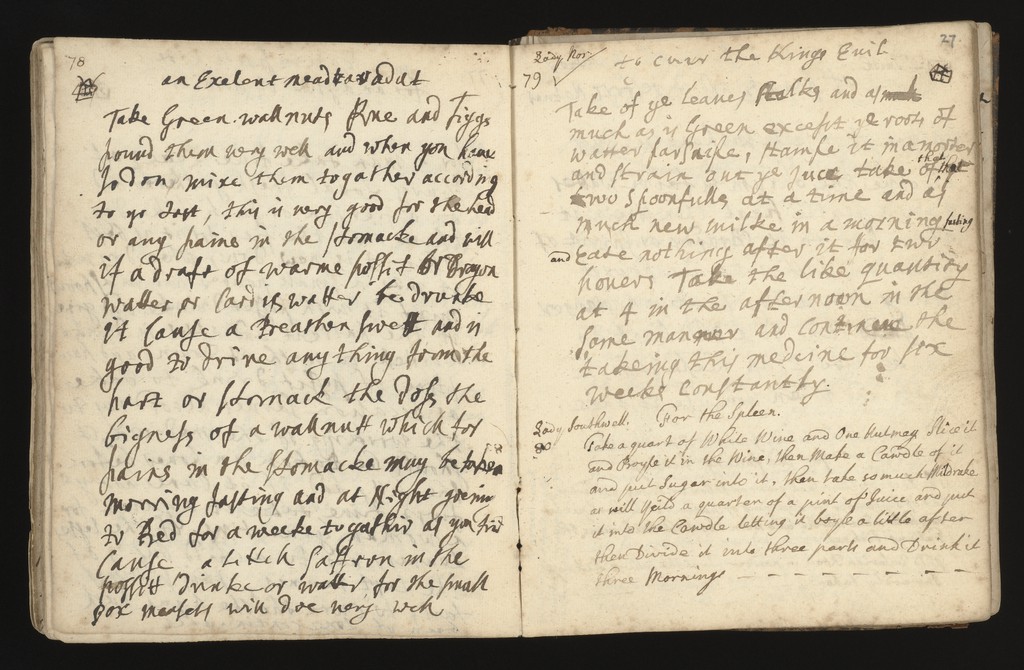 78
an Exelent meadtasadut
Take Green wallnuts Rue and Figgs
pound them very well and when you haue
so don mixe them togather according
to yo tast, this is very good for the head
or any paines in the stomacke and will
if a draft of warme possit or Dragon
watter or Cardis watter be drunke
it Cause a Breathen swett and is
good to drive any thing from the
hart or stomack the doss the
bigness of a wallnutt which for
pains in the stomacke may be taken
morning fasting and at Night goeing
to Bed for a weeke togather as you find
Cause a littell Saffron in the
possitt drinke or watter for the small
pox measells will doe very well
27
Lady Nor
79
to cuer the Kings Evil
Take of ye leaves stalks and as
much as is Green except ye roots of
watter parsnipe, stampe it in a morter
and strain out ye juce take of that
two spoonfulls at a time and as
much new milke in a morning fasting
and Eate nothing after it for two
houers Take the like quantity
at 4 in the afternoon in the
same manner and continew the
takeing this medcine for six
weeks constantly.
Lady Southwell. For the Spleen.
80
Take a quart of White Wine and One Nutmeg Slice it
and Boyle it in the Wine, then Make a Cawdle of it
and put Sugar into it, then take so much
as will Yeild a quarter of a pint of Juice and put
it into the Cawdle letting it boyle a little after
then Divide it into three parts and Drink it
three Mornings